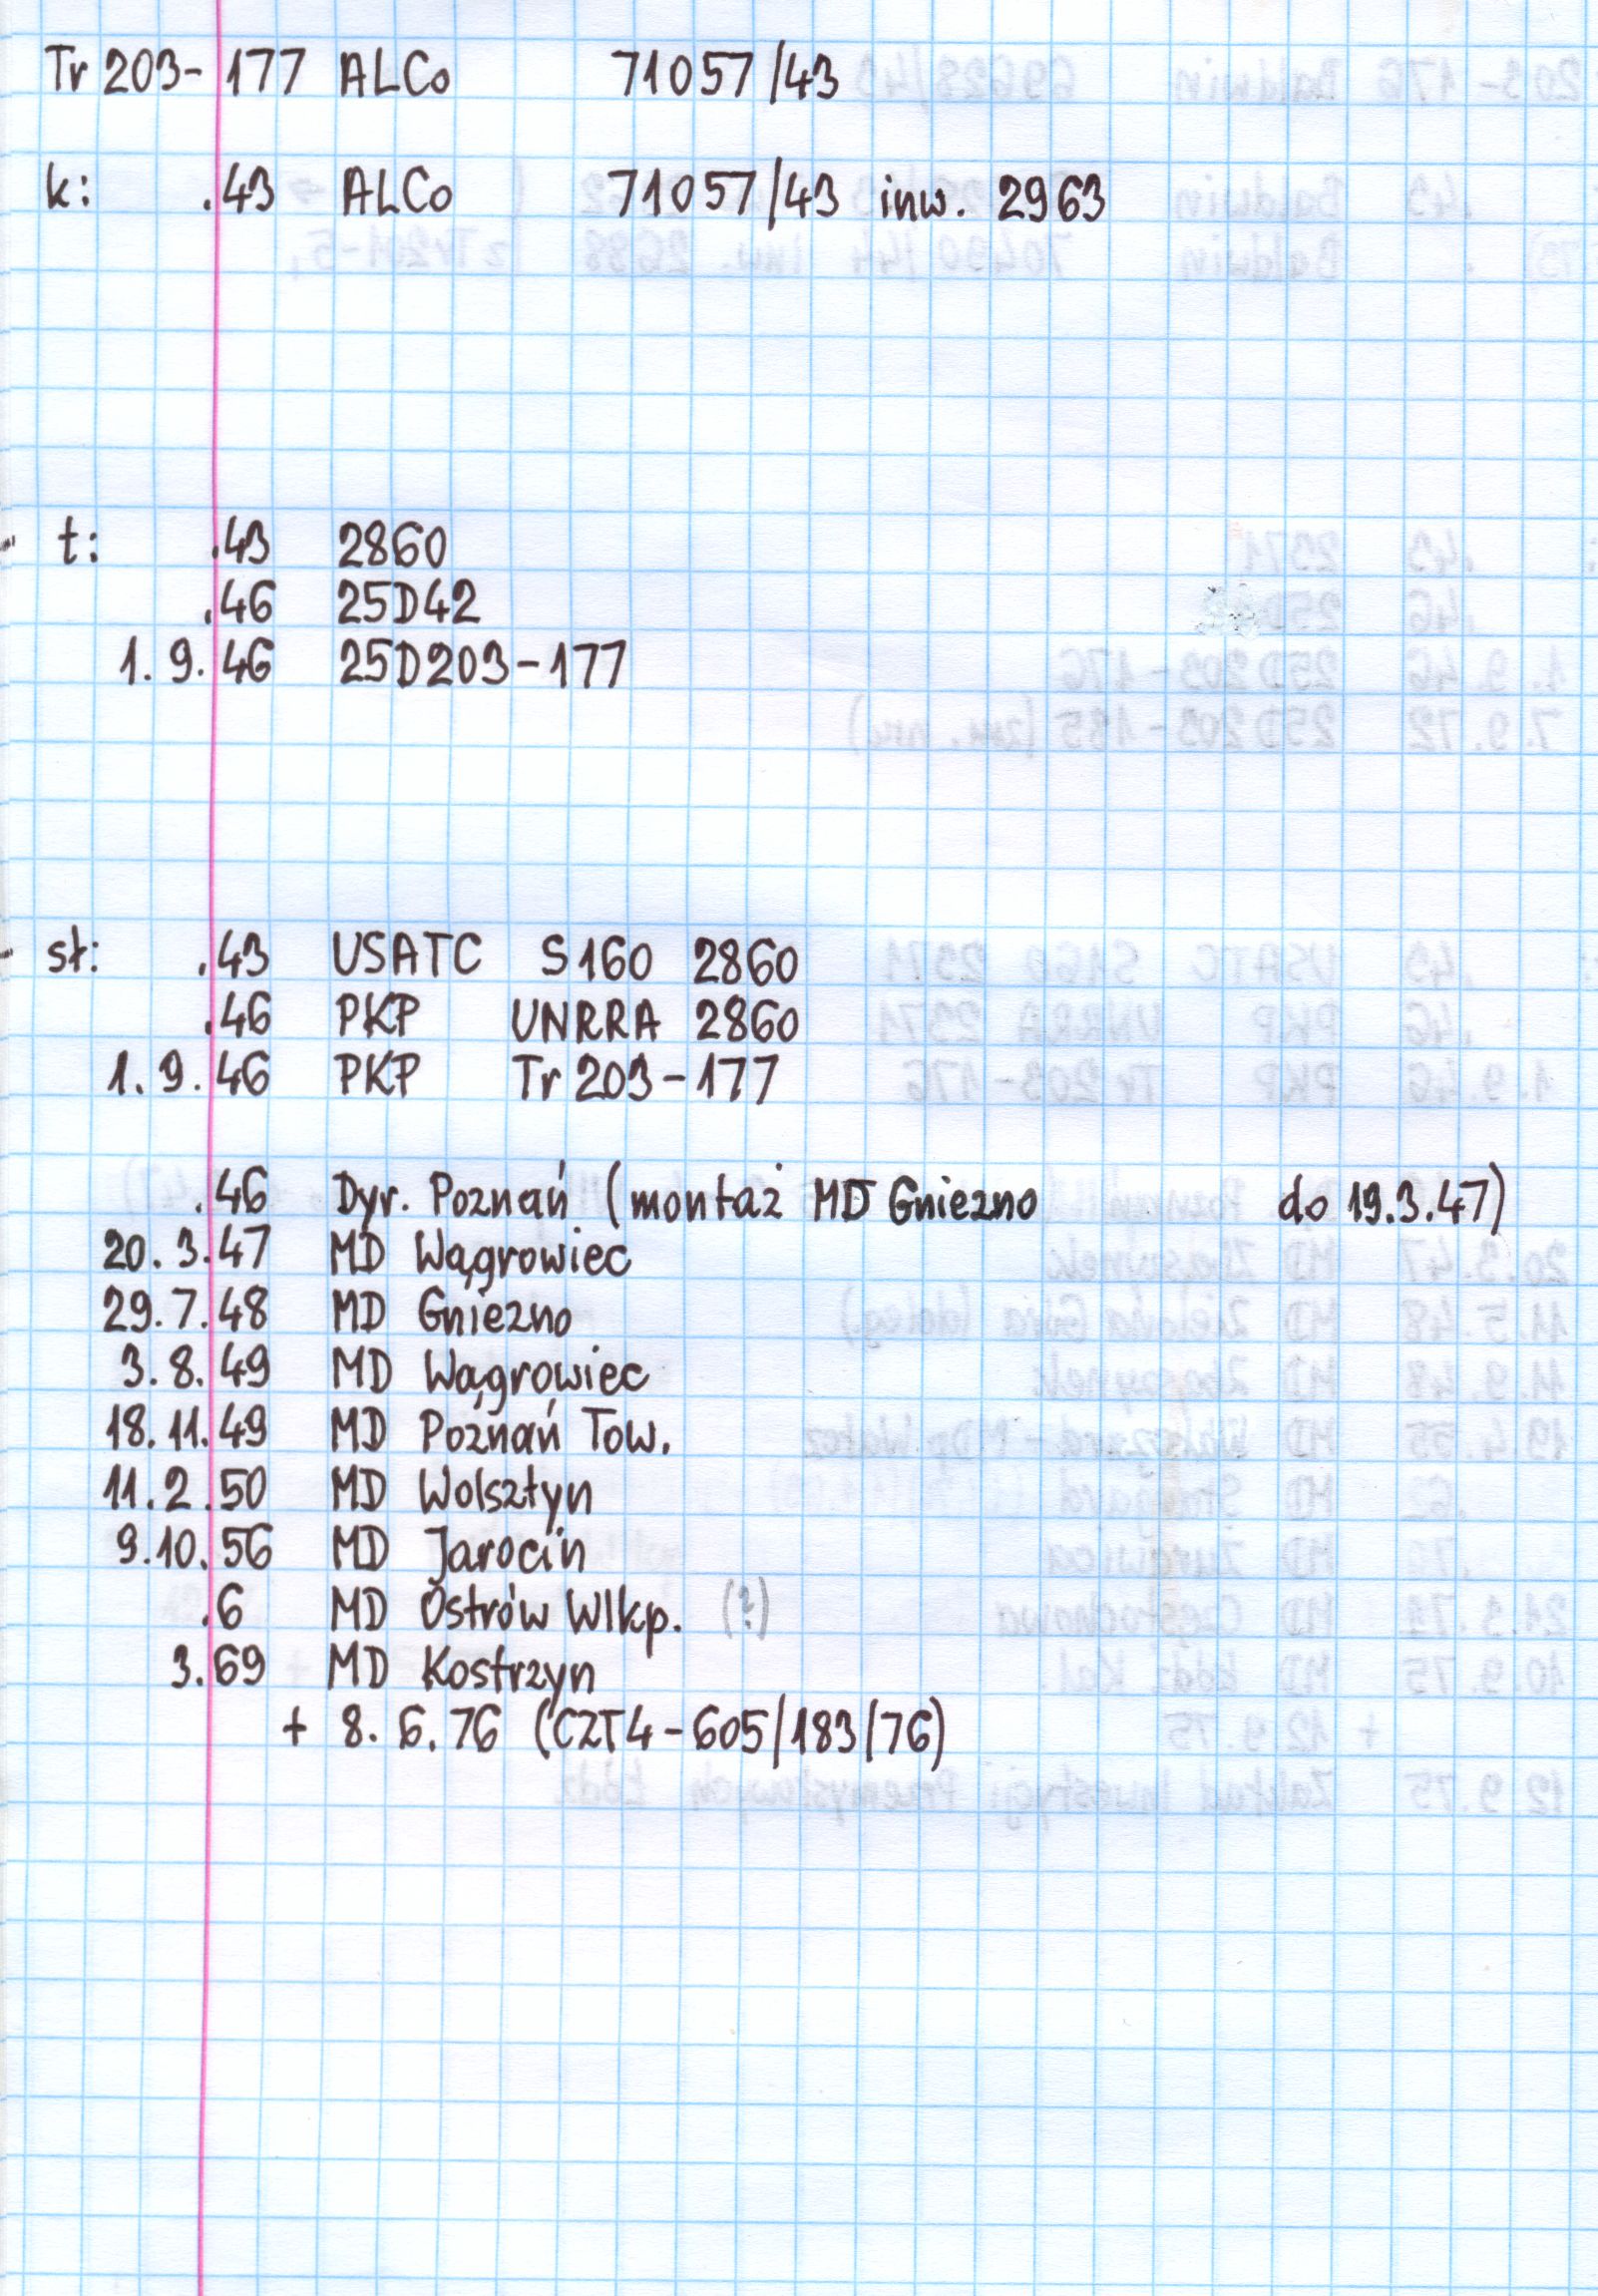 Tr 203-177 ALCo 71057/43
k: .43 ALCo 71057/43 inw. 2963
t: .43 2860
.46 25D42
1.9.46 25D203-177
sł: .43 USATC S160 2860
.46 PKP UNRRA 2860
1.9.46 PKP Tr 203-177
.46 Dyr. Poznań (montaż MD Gniezno do 19.3.47)
20.3.47 MD Wągrowiec
29.7.48 MD Gniezno
3.8.49 MD Wągrowiec
18.11.49 MD Poznań Tow.
11.2.50 MD Wolsztyn
9.10.56 MD Jarocin
.6 MD Ostrów Wlkp. (?)
3.69 MD Kostrzyn
+ 8.6.76 (CZT4-605/183/76)